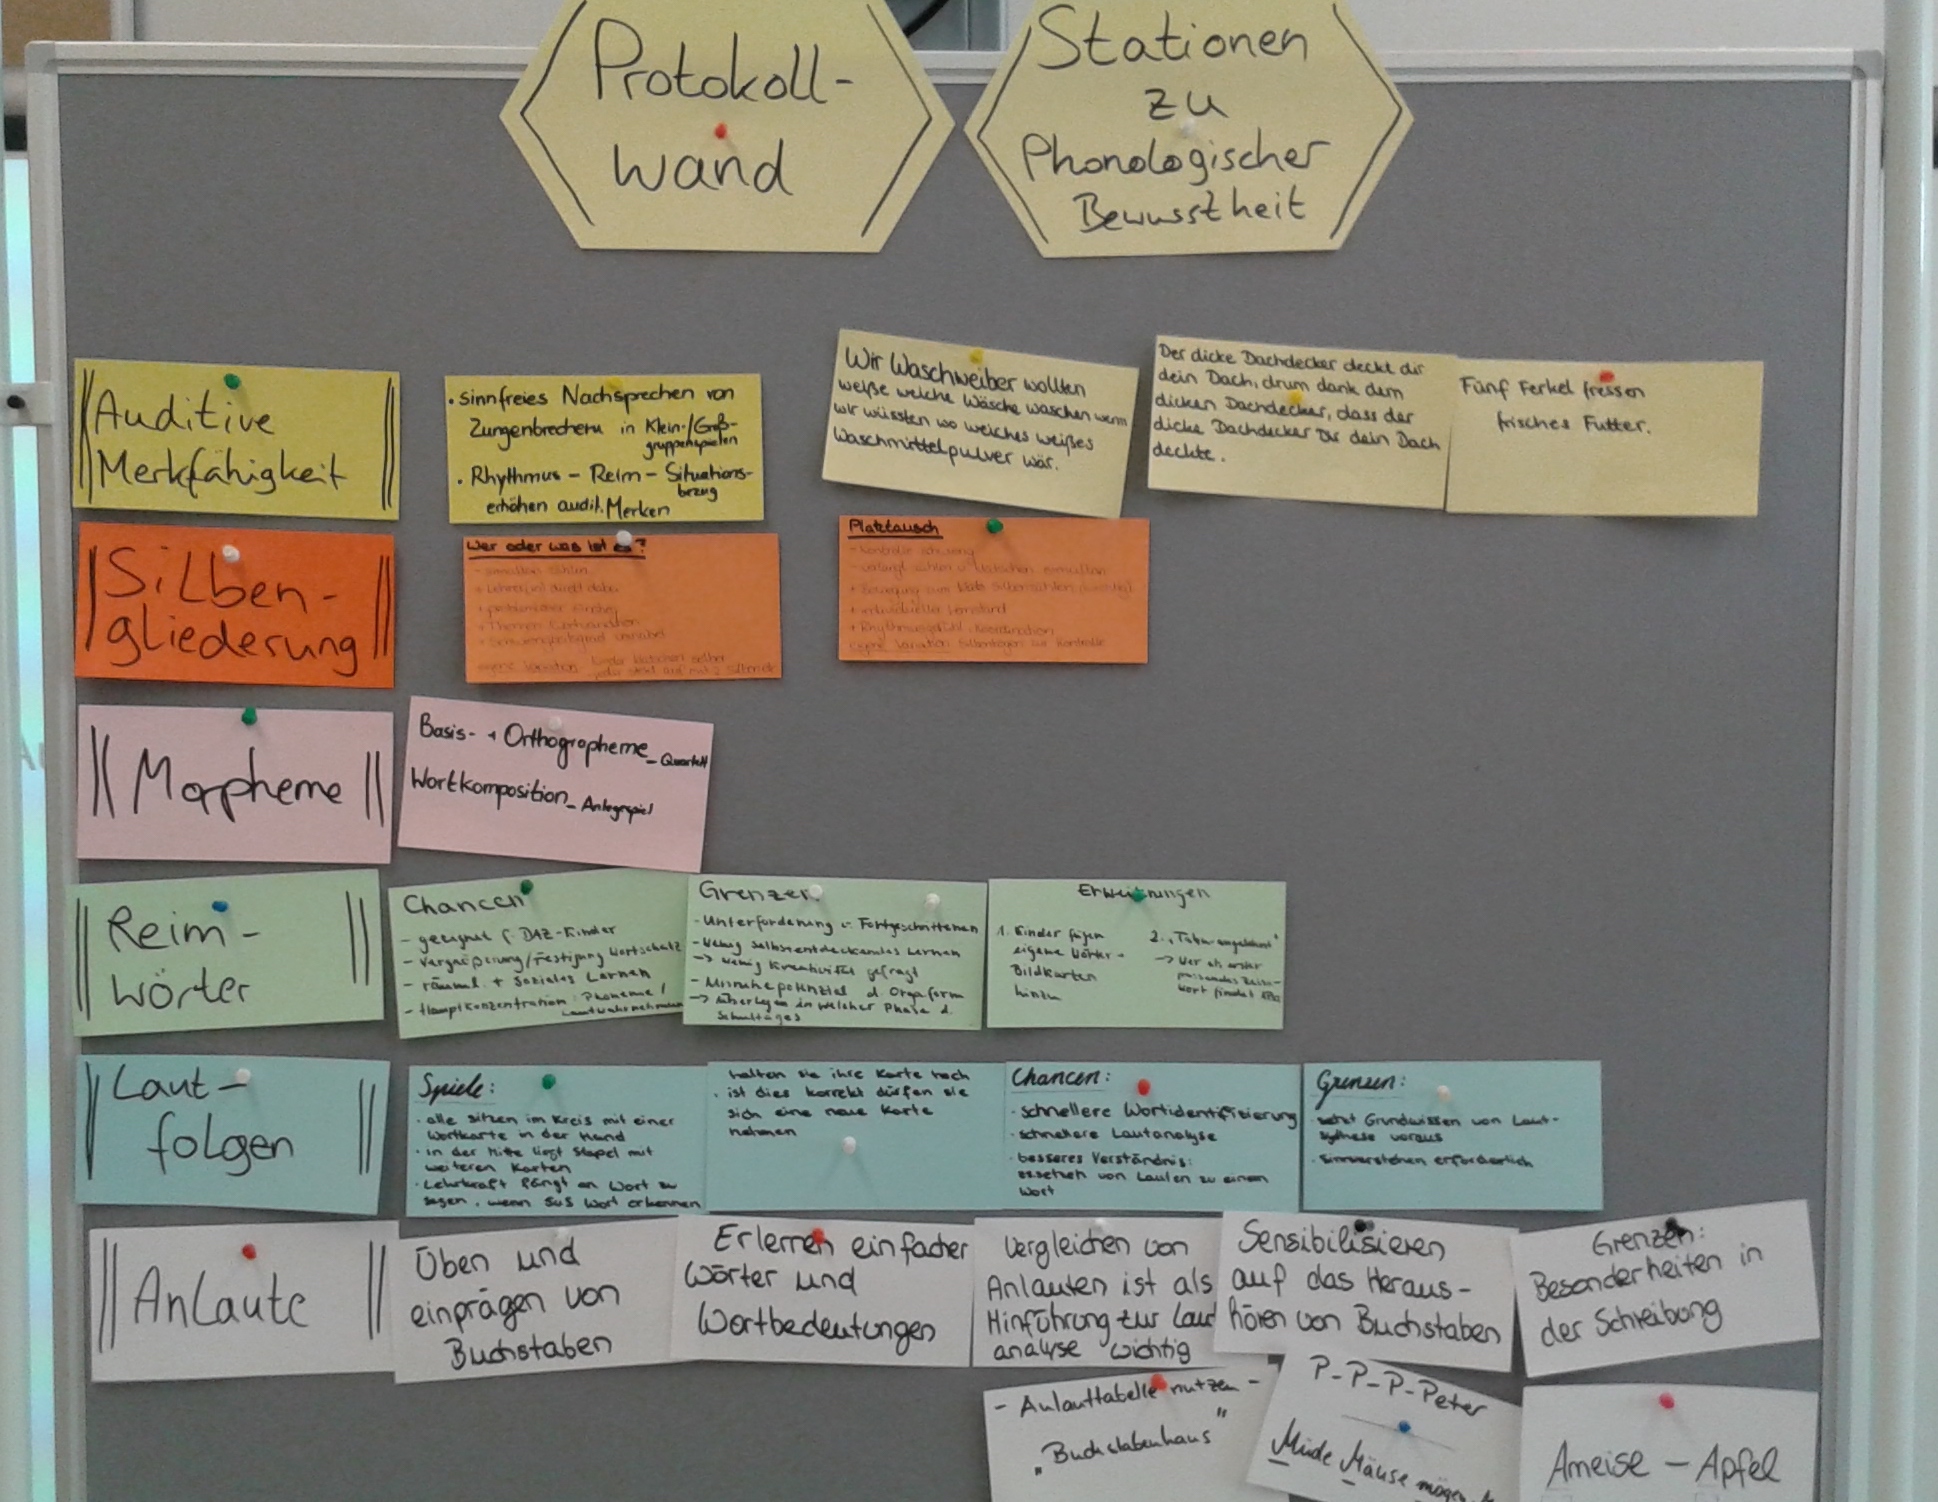 Protokoll-
wand
Stationen
zu
Phonologischer
Bewusstheit
Auditive
Merkfähigkeit
• sinnfreies Nachsprechen von
Zungenbrechern in Klein-/Groß-
gruppenspielen
• Rhythmus - Reim - Situations-
bezug
erhöhen audit. Merken
Wir Waschweiber wollten
weiße weiche Wäsche waschen wenn
wir wüssten wo weiches weißes
Waschmittelpulver wär.
Der dicke Dachdecker deckt dir
dein Dach, drum dank dem
dicken Dachdecker, dass der
dicke Dachdecker Dir dein Dach
deckte.
Fünf Ferkel fressen
frisches Futter.
Silben-
gliederung
Wer oder was ist es?
+ Lehrer direkt dabei
Platztausch
- Kontrolle schwierig
+ Rhythmusgefühl, Koordination
eigene Variation: Silbenbögen zur Kontrolle
Morpheme
Basis- + Orthographeme_Quartett
Wortkomposition_Anlegespiel
Reim-
wörter
Chancen
- geeignet f. DAZ-Kinder
- Vergrößerung/Festigung Wortschatz
- räuml. + soziales Lernen
- Hauptkonzentration: Phoneme/
Lautwahrnehmung
Grenzen
- Unterforderung v. Fortgeschrittenen
- Wenig selbstentdeckendes Lernen
-> wenig Kreativität gefragt
- Unruhepotenzial d. Orgaform
-> überlegen in welcher Phase d.
Schultages
Erweiterungen
1. Kinder fügen
eigene Wörter +
Bildkarten
hinzu
2.
-> Wer als erster
passendes Reim-
wort findet
Laut-
folgen
Spiele:
• alle sitzen im Kreis mit einer
Wortkarte in der Hand
• in der Mitte liegt Stapel mit
weiteren Karten
• Lehrkraft fängt an Wort zu
sagen, wenn SuS Wort erkennen
halten sie ihre Karte hoch
• ist dies korrekt dürfen sie
sich eine neue Karte
nehmen
Chancen:
• schnellere Wortidentifizierung
• schnellere Lautanalyse
• besseres Verständnis:
ersetzen von Lauten zu einem
Wort
Grenzen:
• setzt Grundwissen von Laut-
synthese voraus
• Sinnverstehen erforderlich
Anlaute
Üben und
einprägen von
Buchstaben
Erlernen einfacher
Wörter und
Wortbedeutungen
Vergleichen von
Anlauten ist als
Hinführung zur Laut
analyse wichtig
Sensibilisieren
auf das Heraus-
hören von Buchstaben
Grenzen:
Besonderheiten in
der Schreibung
- Anlauttabelle nutzen -
„Buchstabenhaus"
P-P-P-Peter
Müde Mäuse mögen
Ameise - Apfel